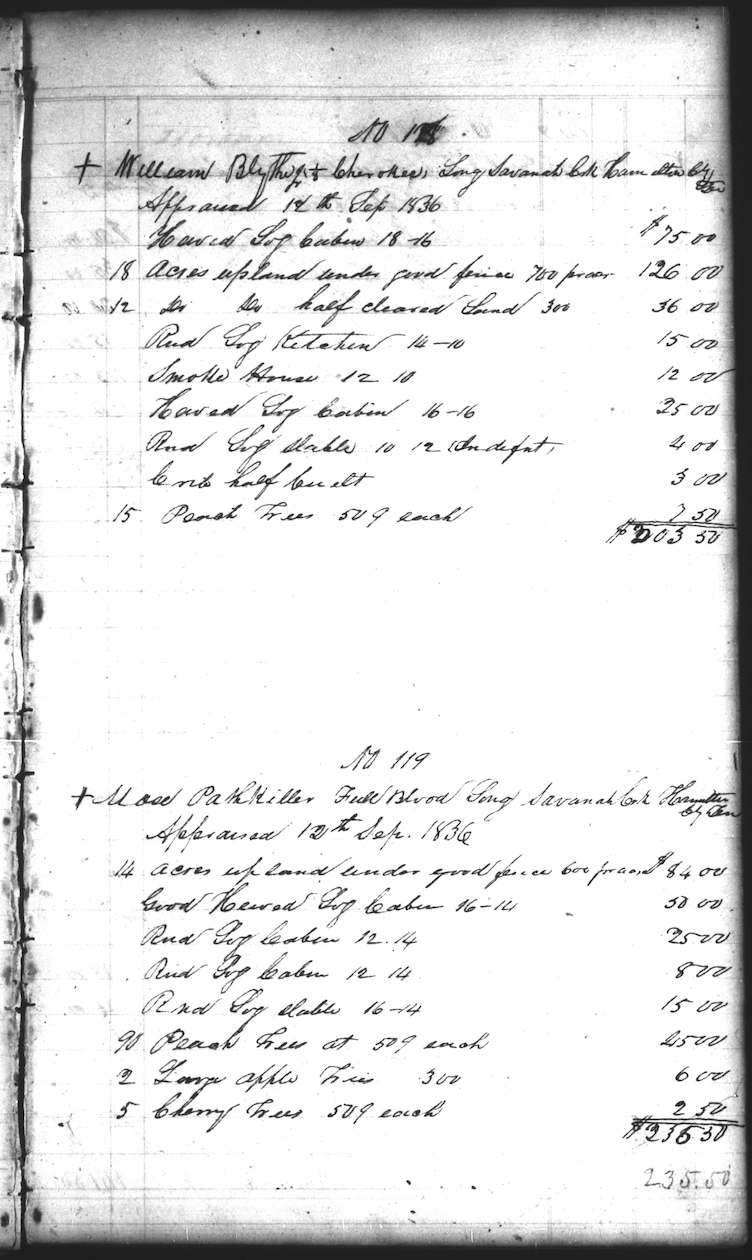 No 118
+ William Blythe Cherokee, Long Savanah Crk Hamilton Cty Ten
Appraised 12th Sep 1836
Hewed Log Cabin 18-16 $75 00
18 Acres upland under good fence 700 pr acr 126 00
12 Do Do half cleared Land 300 36 00
Rnd Log Kitchen 14-10 15 00
Smoke House 12 10 12 00
Hewed Log Cabin 16-16 25 00
Rnd Log Stable 10 12 (Indifnt) 4 00
Crib half built 3 00
15 Peach Trees 50¢ each 7 50
$303 50
No 119
+ Mose PathKiller Full Blood Long Savanah Crk Hamilton Cty Ten
Appraised 12th Sep. 1836
14 Acres upland under good fence 600 pr acre $84 00
Good Hewed Log Cabin 16-14 50 00
Rnd Log Cabin 12.14 25 00
Rnd Log Cabin 12 14 8 00
Rnd Log Stable 16-14 15 00
90 Peach Trees at 50¢ each 45 00
2 Large apple Trees 300 6 00
5 Cherry Trees 50¢ each 2 50
$235 50
235.50